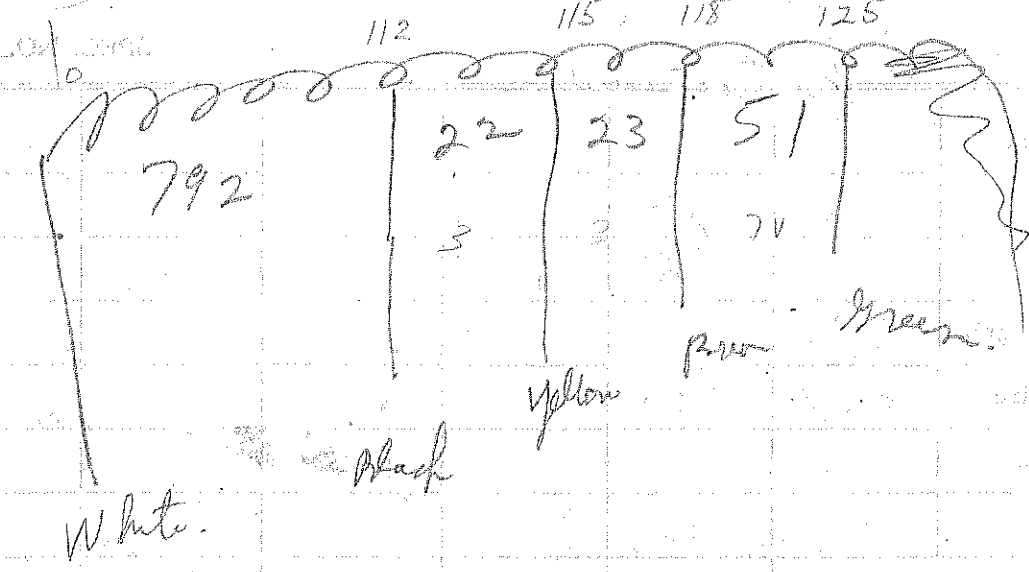 0 112 115 118 125
792 22 23 51
3 3 7V
White. Black Yellow Brown Green.